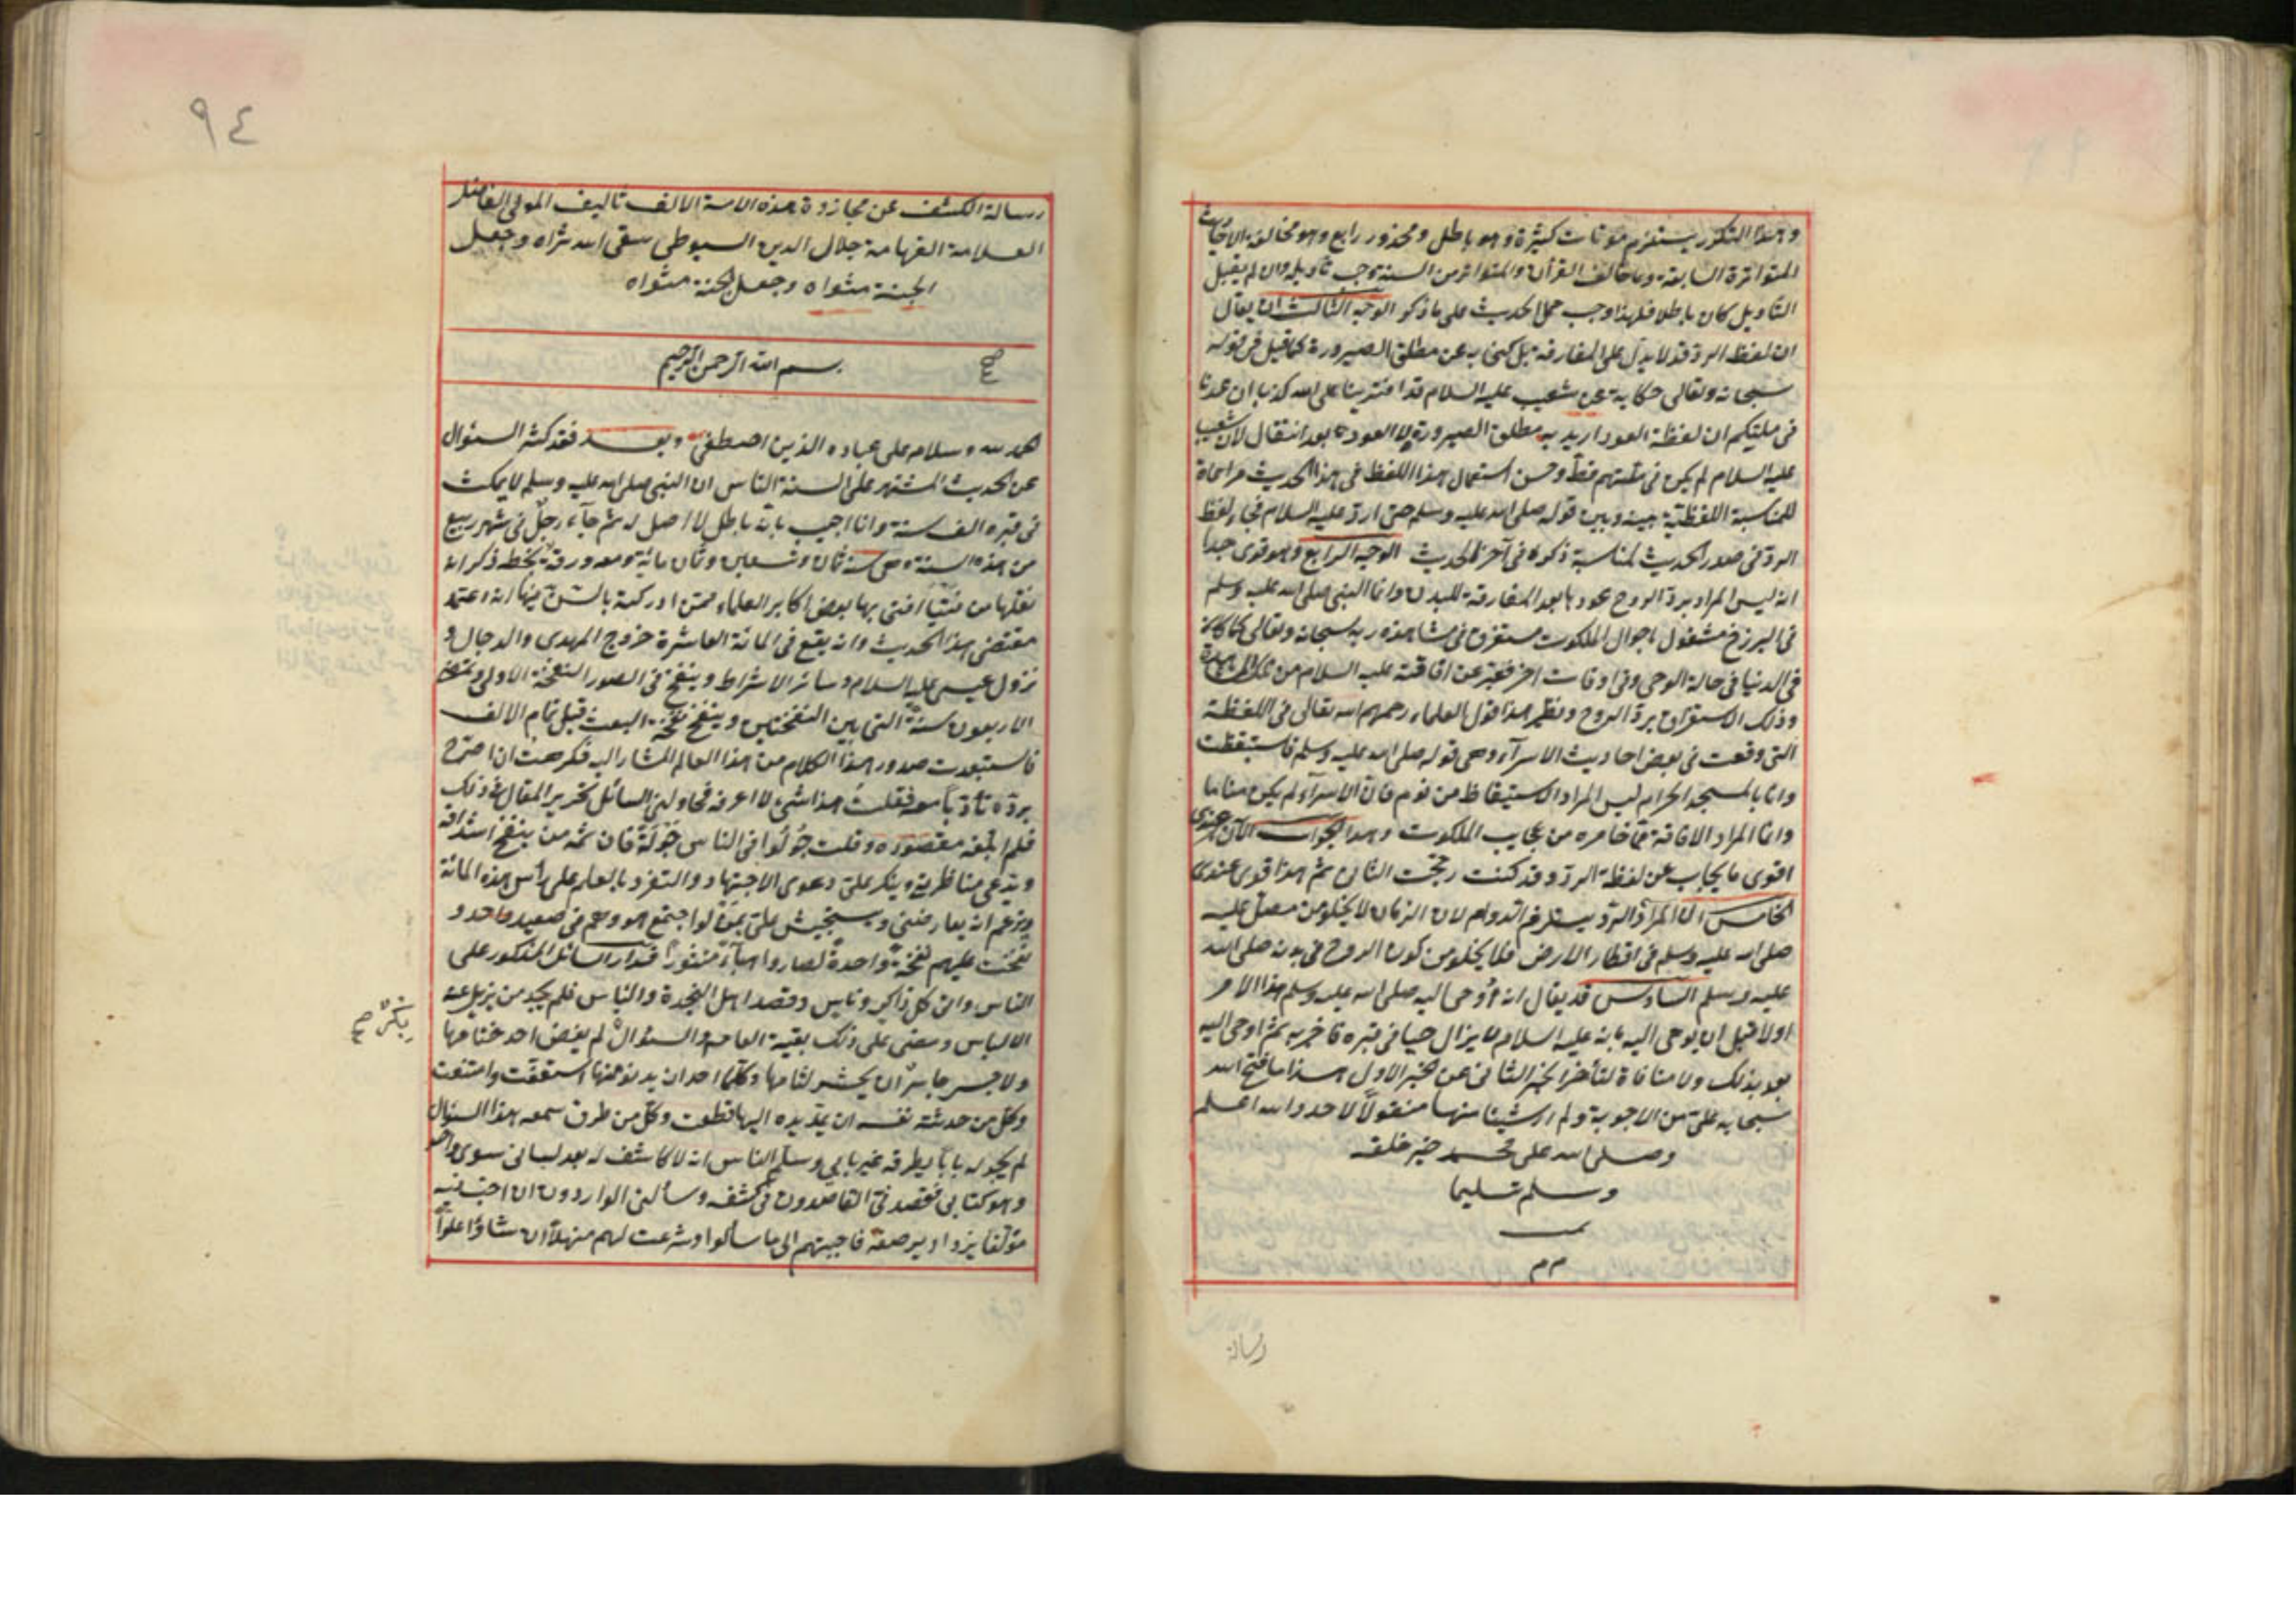 وهذا التكرر يستلزم موتات كثيرة وهو باطل ومحذور رابع وهو مخالفة الاحاديث
المتواترة السابقة وما خالف القرأن والمتواتر من السنة وجب تأويله وان لم يقبل
التأويل كان باطلا فلهذا وجب حمل الحديث على ما ذكر الوجه الثالث ان يقال
ان لفظ الرد قد لا يدل على المفارقة بل كنى به عن مطلق الصيرورة كما قيل في قوله
سبحانه وتعالى حكاية عن شعيب عليه السلام قد افترينا على الله كذبا ان عدنا
في ملتكم ان لفظة العود اريد به مطلق الصيرورة لا العود بعد انتقال لان شعيب
عليه السلام لم يكن في ملتهم قط وحسن استعمال هذا اللفظ في هذا الحديث مراعاة
للمناسبة اللفظية بينه وبين قوله صلى الله عليه وسلم حتى ارد عليه السلام فجاء لفظ
الرد في صدر الحديث لمناسبة ذكره في آخر الحديث الوجه الرابع وهو قوى جدا
انه ليس المراد برد الروح عودها بعد المفارقة للبدن وانما النبي صلى الله عليه وسلم
في البرزخ مشغول باحوال الملكوت مستغرق في مشاهدة ربه سبحانه وتعالى كما كان
في الدنيا في حالة الوحي وفي اوقات اخر فعبر عن افاقته عليه السلام من تلك المشاهدة
وذلك الاستغراق برد الروح ونظير هذا قول العلماء رحمهم الله تعالى في اللفظة
التي وقعت في بعض احاديث الاسرآء وهي قوله صلى الله عليه وسلم فاستيقظت
وانا بالمسجد الحرام ليس المراد الاستيقاظ من نوم فان الاسرآء لم يكن مناما
وانما المراد الافاقة مما خامره من عجايب الملكوت وهذا الجواب الآن عندى
اقوى ما يجاب عن لفظة الرد وقد كنت رجحت الثانى ثم هذا قوى عندى
الخامس ان المراد الرد يستلزم الدوام لان الزمان لا يخلو من مصل عليه
صلى الله عليه وسلم في اقطار الارض فلا يخلو من كون الروح في بدنه صلى الله
عليه وسلم السادس قد يقال انه أوحى اليه صلى الله عليه وسلم هذا الامر
اولا قبل ان يوحى اليه بانه عليه السلام لا يزال حيا في قبره فاخبر به ثم اوحى اليه
بعد بذلك ولا منافاة لتأخر الخبر الثاني عن الخبر الاول هذا ما فتح الله
سبحانه على من الاجوبة ولم ار شيئا منها منقولا لاحد والله اعلم
وصلى الله على محمد خير خلقه
وسلم تسليما
تمت
م م
رسالة
٩٤
رسالة الكشف عن مجاوزة هذه الامة الالف تأليف المولى الفاضل
العلامة الفهامة جلال الدين السيوطى سقى الله ثراه وجعل
الجنة مثواه وجعل الجنة مثواه
بسم الله الرحمن الرحيم
الحمد لله وسلام على عباده الذين اصطفى وبعد فقد كثر السئوال
عن الحديث المشتهر على السنة الناس ان النبي صلى الله عليه وسلم لا يمكث
في قبره الف سنة وانا اجيب بانه باطل لا اصل له ثم جآء رجل في شهر ربيع
من هذه السنة وهي سنة ثمان وتسعين وثمان مائة ومعه ورقة بخطه ذكر انه
نقلها من فتيا افتى بها بعض اكابر العلماء ممن ادركته بالسن فيها انه اعتمد
مقتضى هذا الحديث وانه يقع في المائة العاشرة خروج المهدى والدجال و
نزول عيسى عليه السلام وسائر الاشراط وينفخ في الصور النفخة الاولى وتمضى
الاربعون سنة التي بين النفختين وينفخ نفخة البعث قبل تمام الالف
فاستبعدت صدور هذا الكلام من هذا العالم المشار اليه فكرهت ان اصرح
برده تأدبا معه فقلت هذا شئ لا اعرفه فحاولني السائل تحرير المقال في ذلك
فلم ابلغه مقصوده وقلت جولوا في الناس جولة فان ثمه من ينفخ اشداقه
ويدعى مناظرتى وينكر على دعوى الاجتهاد والتفرد بالعلم على رأس هذه المائة
ويزعم انه يعارضني ويستجيش على بمن لو اجتمع هو وهم في صعيد واحد و
نفخت عليهم نفخة واحدة لصاروا هبآء منثورا فدار السائل المذكور على
الناس واتى كل ذاكر وناس وقصد اهل النجدة والباس فلم يجد من يزيل عنه
الالباس ومضى على ذلك بقية العام والسئوال لم يفض احد ختامها
بكر صح
ولا جسر جاسر ان يحسر لثامها وكلما احد ان يدنو منها استعفت وامتنعت
وكل من حدثته نفسه ان يمد يده اليها قطعت وكل من طرق سمعه هذا السئوال
لم يجد له بابا يطرقه غير بابي وسلم الناس انه لا كاشف له بعد لساني سوى واحد
وهو كتابى فقصدنى القاصدون في كشفه وسألنى الواردون ان احبر فيه
مؤلفا يزداد برصفه فاجبتهم الى ما سألوا وشرعت لهم منهلا ان شاؤا علوا